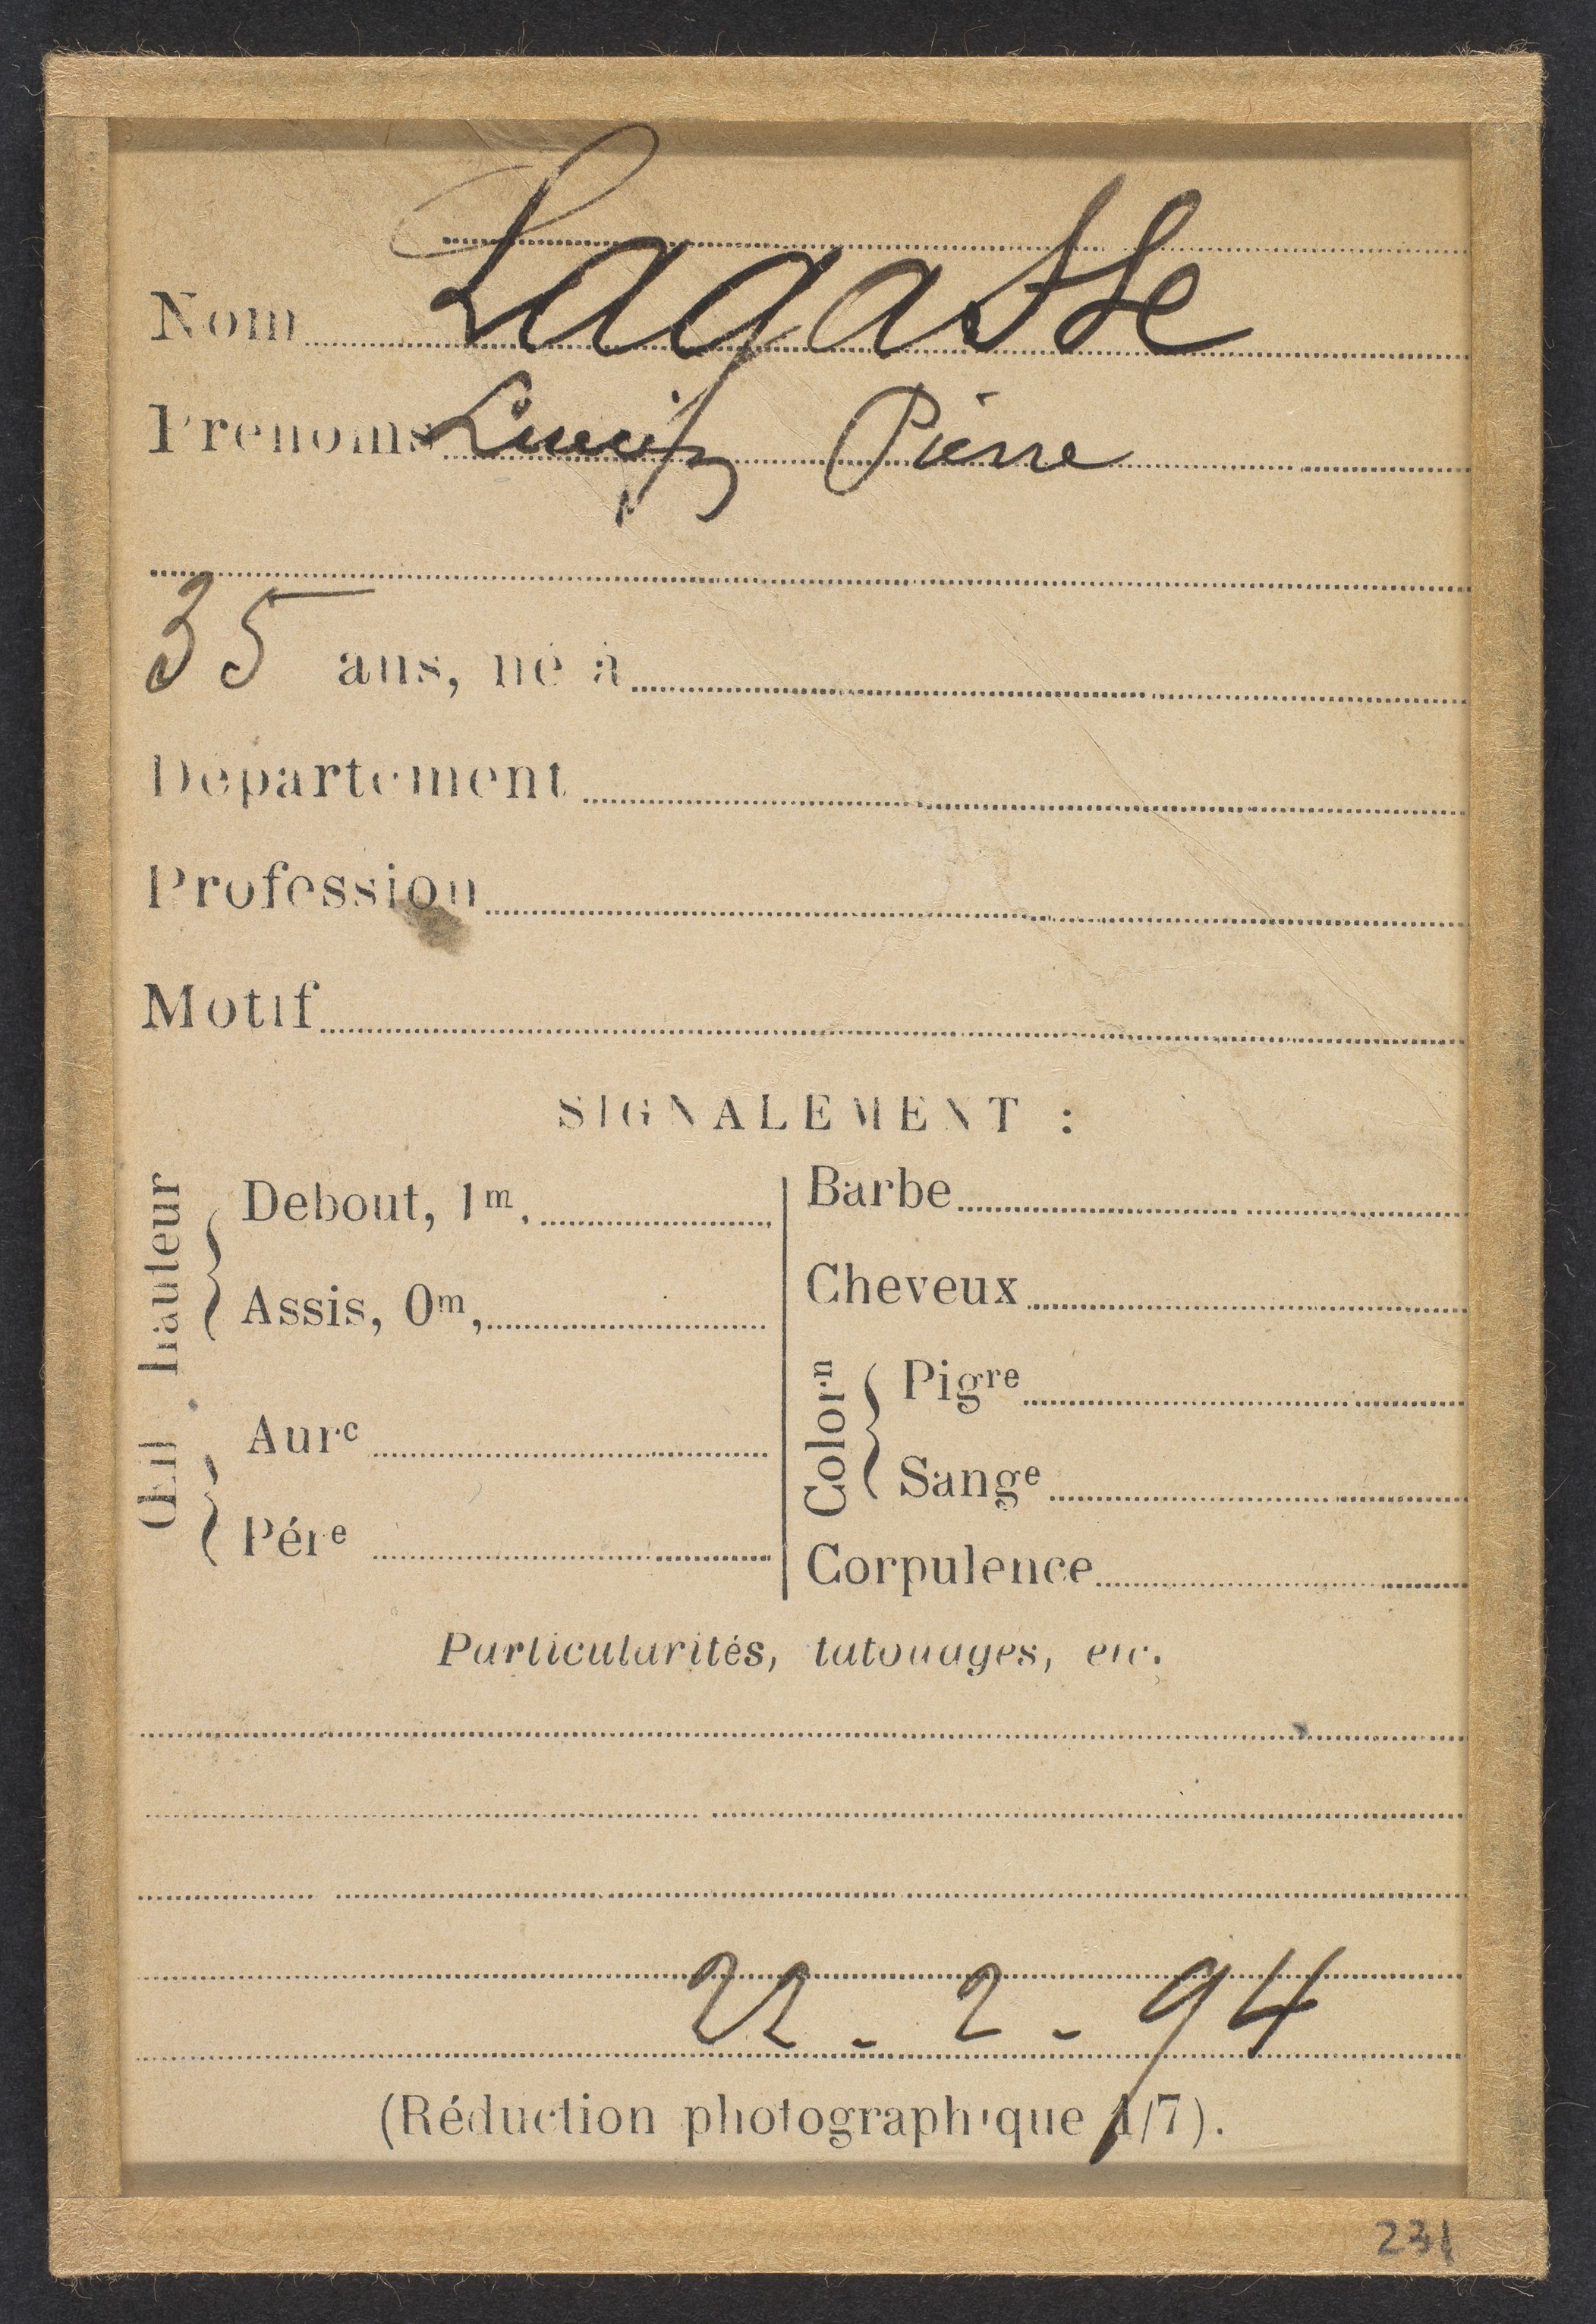 Lagasse
Nom
Prénoms Pierre
35 ans, né à
Département
Profession
Motif
SIGNALEMENT :
hauteur
Debout, 1m,
Assis, 0m,
Œil
Aurᵉ
Pérᵉ
Barbe
Cheveux
Colorⁿ
Pigʳᵉ
Sangᵉ
Corpulence
Particularités, tatouages, etc.
22 - 2 - 94
(Réduction photographique 1/7).
231